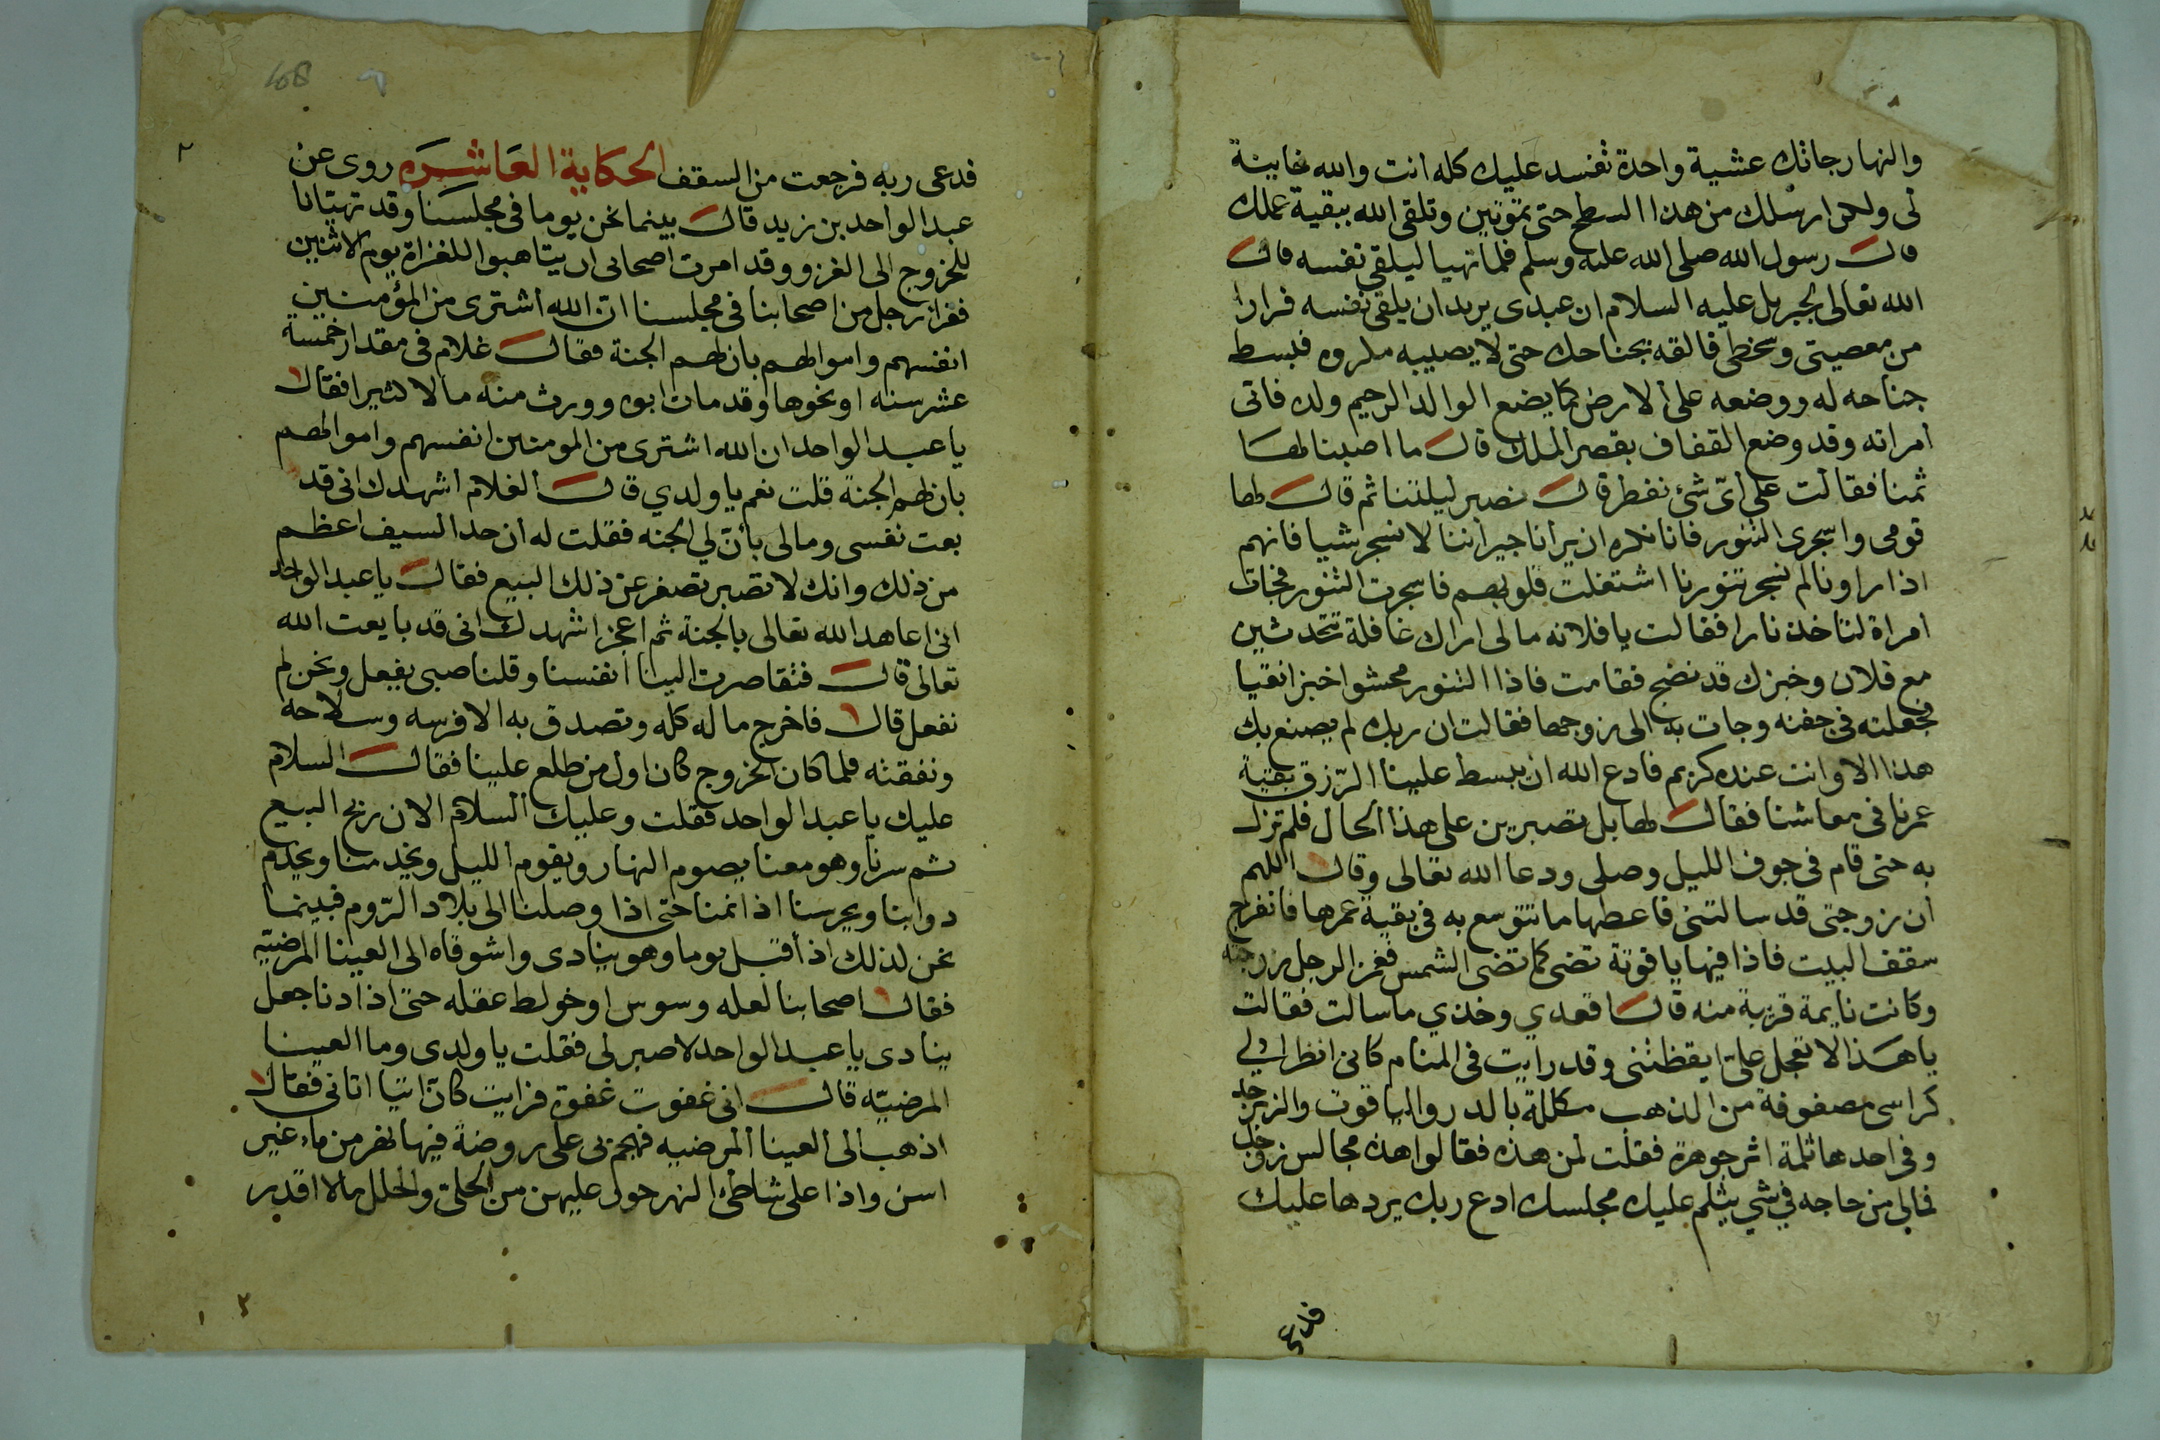 والنهار جاتك عشية واحدة تفسد عليك كله انت والله خاينة
لى ولكن ارسلك من هذا السطح حتى تموتين وتلقى الله ببقية عملك
قال رسول الله صلى الله عليه وسلم فلما تهيا ليلقى نفسه قال
الله تعالى لجبريل عليه السلام ان عبدى يريد ان يلقى نفسه فرارا
من معصيتى وسخطى فالقه بجناحك حتى لا يصيبه مكروه فبسط
جناحه له ووضعه على الارض كما يضع الوالد الرحيم ولده فاتى
امراته وقد وضع القفاف بقصر الملك قال ما اصبنا لها
ثمنا فقالت على اىّ شئ نفطر قال نصبر ليلتنا ثم قال لها
قومى واسجرى التنور فانا نكره ان يرانا جيراننا لا نسجر شيا فانهم
اذا راونا لم نسجر تنورنا اشتغلت قلوبهم فاسجرت التنور فجات
امراة لتاخذ نارا فقالت يا فلانه مالى اراك غافلة تتحدثين
مع فلان وخبزك قد نضج فقامت فاذا التنور محشوا خبزا نقيا
فجعلته فى جفنه وجات به الى زوجها فقالت ان ربك لم يصنع بك
هذا الا وانت عنده كريم فادع الله ان يبسط علينا الرّزق بقية
عمرنا فى معاشنا فقال لها بل تصبرين على هذا الحال فلم تزل
به حتى قام فى جوف الليل وصلى ودعا الله تعالى وقال اللهم
ان زوجتى قد سالتنى فاعطها ما تتوسع به فى بقية عمرها فانفرج
سقف البيت فاذا فيها ياقوتة تضى كما تضى الشمس فغمز الرجل زوجته
وكانت نايمة قريبة منه قال اقعدي وخذي ما سالت فقالت
يا هذا لا تعجل علىّ ايقظتنى وقد رايت فى المنام كانى انظر الى
كراسى مصفوفة من الذهب مكللة بالدر والياقوت والزبرجد
وفى احدها ثلمة اثر جوهرة فقلت لمن هذه فقالوا هذه مجالس زوجك
فمالى من حاجه فى شي يثلم عليك مجلسك ادع ربك يردها عليك
فدعى
فدعى ربه فرجعت من السقف الحكاية العاشره روى عن
عبد الواحد بن زيد قال بينما نحن يوما فى مجلسنا وقد تهيانا
للخروج الى الغزو وقد امرت اصحابى ان يتاهبوا للغزاة يوم الاثنين
فقرا رجل من اصحابنا فى مجلسنا ان الله اشترى من المؤمنين
انفسهم واموالهم بان لهم الجنة فقال غلام فى مقدار خمسة
عشر سنه او نحوها وقد مات ابوه وورث منه مالا كثيرا فقال
يا عبد الواحد ان الله اشترى من المومنين انفسهم واموالهم
بان لهم الجنة قلت نعم يا ولدي قال الغلام اشهدك انى قد
بعت نفسى ومالى بأنّ لي الجنه فقلت له ان حد السيف اعظم
من ذلك وانك لا تصبر تصغر عن ذلك البيع فقال يا عبد الواحد
انى اعاهد الله تعالى بالجنة ثم اعجز اشهدك انى قد بايعت الله
تعالى قال فتقاصرت الينا انفسنا وقلنا صبى يفعل ونحن لم
نفعل قال فاخرج ماله كله وتصدق به الا فرسه وسلاحه
ونفقته فلما كان الخروج كان اول من طلع علينا فقال السلام
عليك يا عبد الواحد فقلت وعليك السلام الان ربح البيع
ثم سرنا وهو معنا يصوم النهار ويقوم الليل ويخدمنا ويخدم
دوابنا ويحرسنا اذا نمنا حتى اذا وصلنا الى بلاد الرّوم فبينما
نحن لذلك اذ اقبل يوما وهو ينادى واشوقاه الى العينا المرضيّه
فقال اصحابنا لعله وسوس او خولط عقله حتى اذا دنا جعل
ينادى يا عبد الواحد لا صبر لى فقلت يا ولدى وما العينا
المرضيّه قال انى غفوت غفوة فرايت كانّ اتيا اتانى فقال
اذهب الى العينا المرضيه فهجم بى على روضة فيها نهر من ماء غير
اسن واذا على شاطئ النهر حول عليهن من الحلى والحلل مالا اقدر